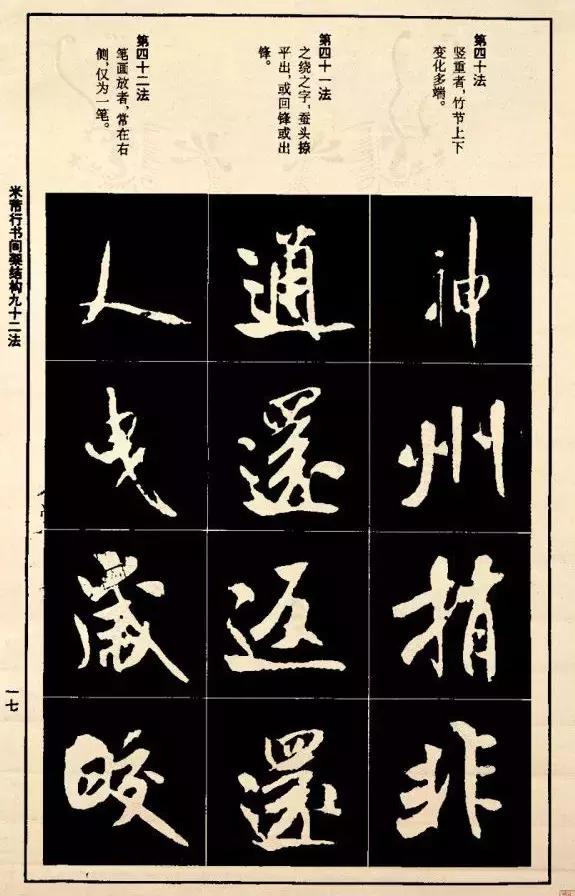 第四十法
竖重者，竹节上下
变化多端。
第四十一法
之绕之字，蚕头撩
平出，或回锋或出
锋。
第四十二法
笔画放者，常在右
侧，仅为一笔。
神州捎非
通還返還
人曳歲晈
米芾行书间架结构九十二法
一七